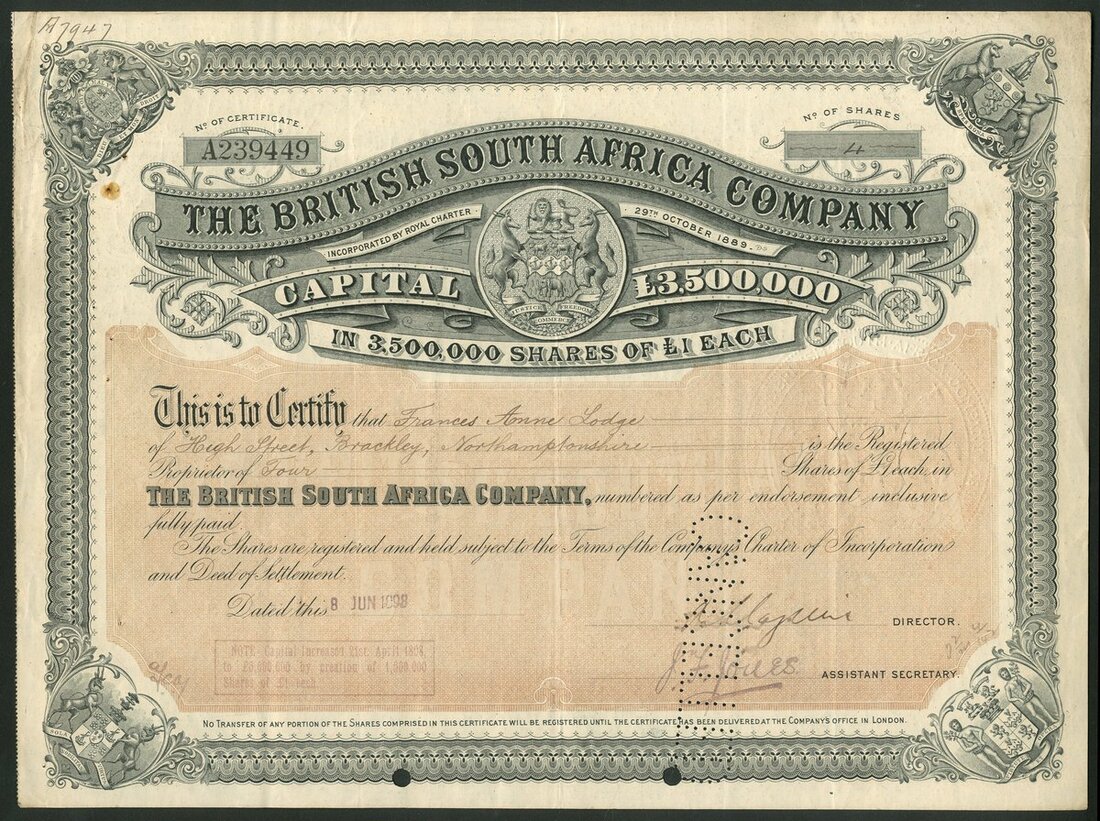 A7947
No OF CERTIFICATE.
A239449
No OF SHARES
4
THE BRITISH SOUTH AFRICA COMPANY
INCORPORATED BY ROYAL CHARTER
29TH OCTOBER 1889.
CAPITAL £3,500,000
JUSTICE FREEDOM
COMMERCE
IN 3,500,000 SHARES OF £1 EACH
This is to Certify that Frances Anne Lodge
of High Street, Brackley, Northamptonshire is the Registered
Proprietor of Four Shares of £1 each, in
THE BRITISH SOUTH AFRICA COMPANY, numbered as per endorsement inclusive
fully paid.
The Shares are registered and held subject to the Terms of the Company's Charter of Incorporation
and Deed of Settlement.
Dated this 8 JUN 1898
DIRECTOR.
NOTE. Capital Increased 21st. April 1898
to by creation of
Shares of each
J. F. Jones
ASSISTANT SECRETARY.
No TRANSFER OF ANY PORTION OF THE SHARES COMPRISED IN THIS CERTIFICATE WILL BE REGISTERED UNTIL THE CERTIFICATE HAS BEEN DELIVERED AT THE COMPANY'S OFFICE IN LONDON.